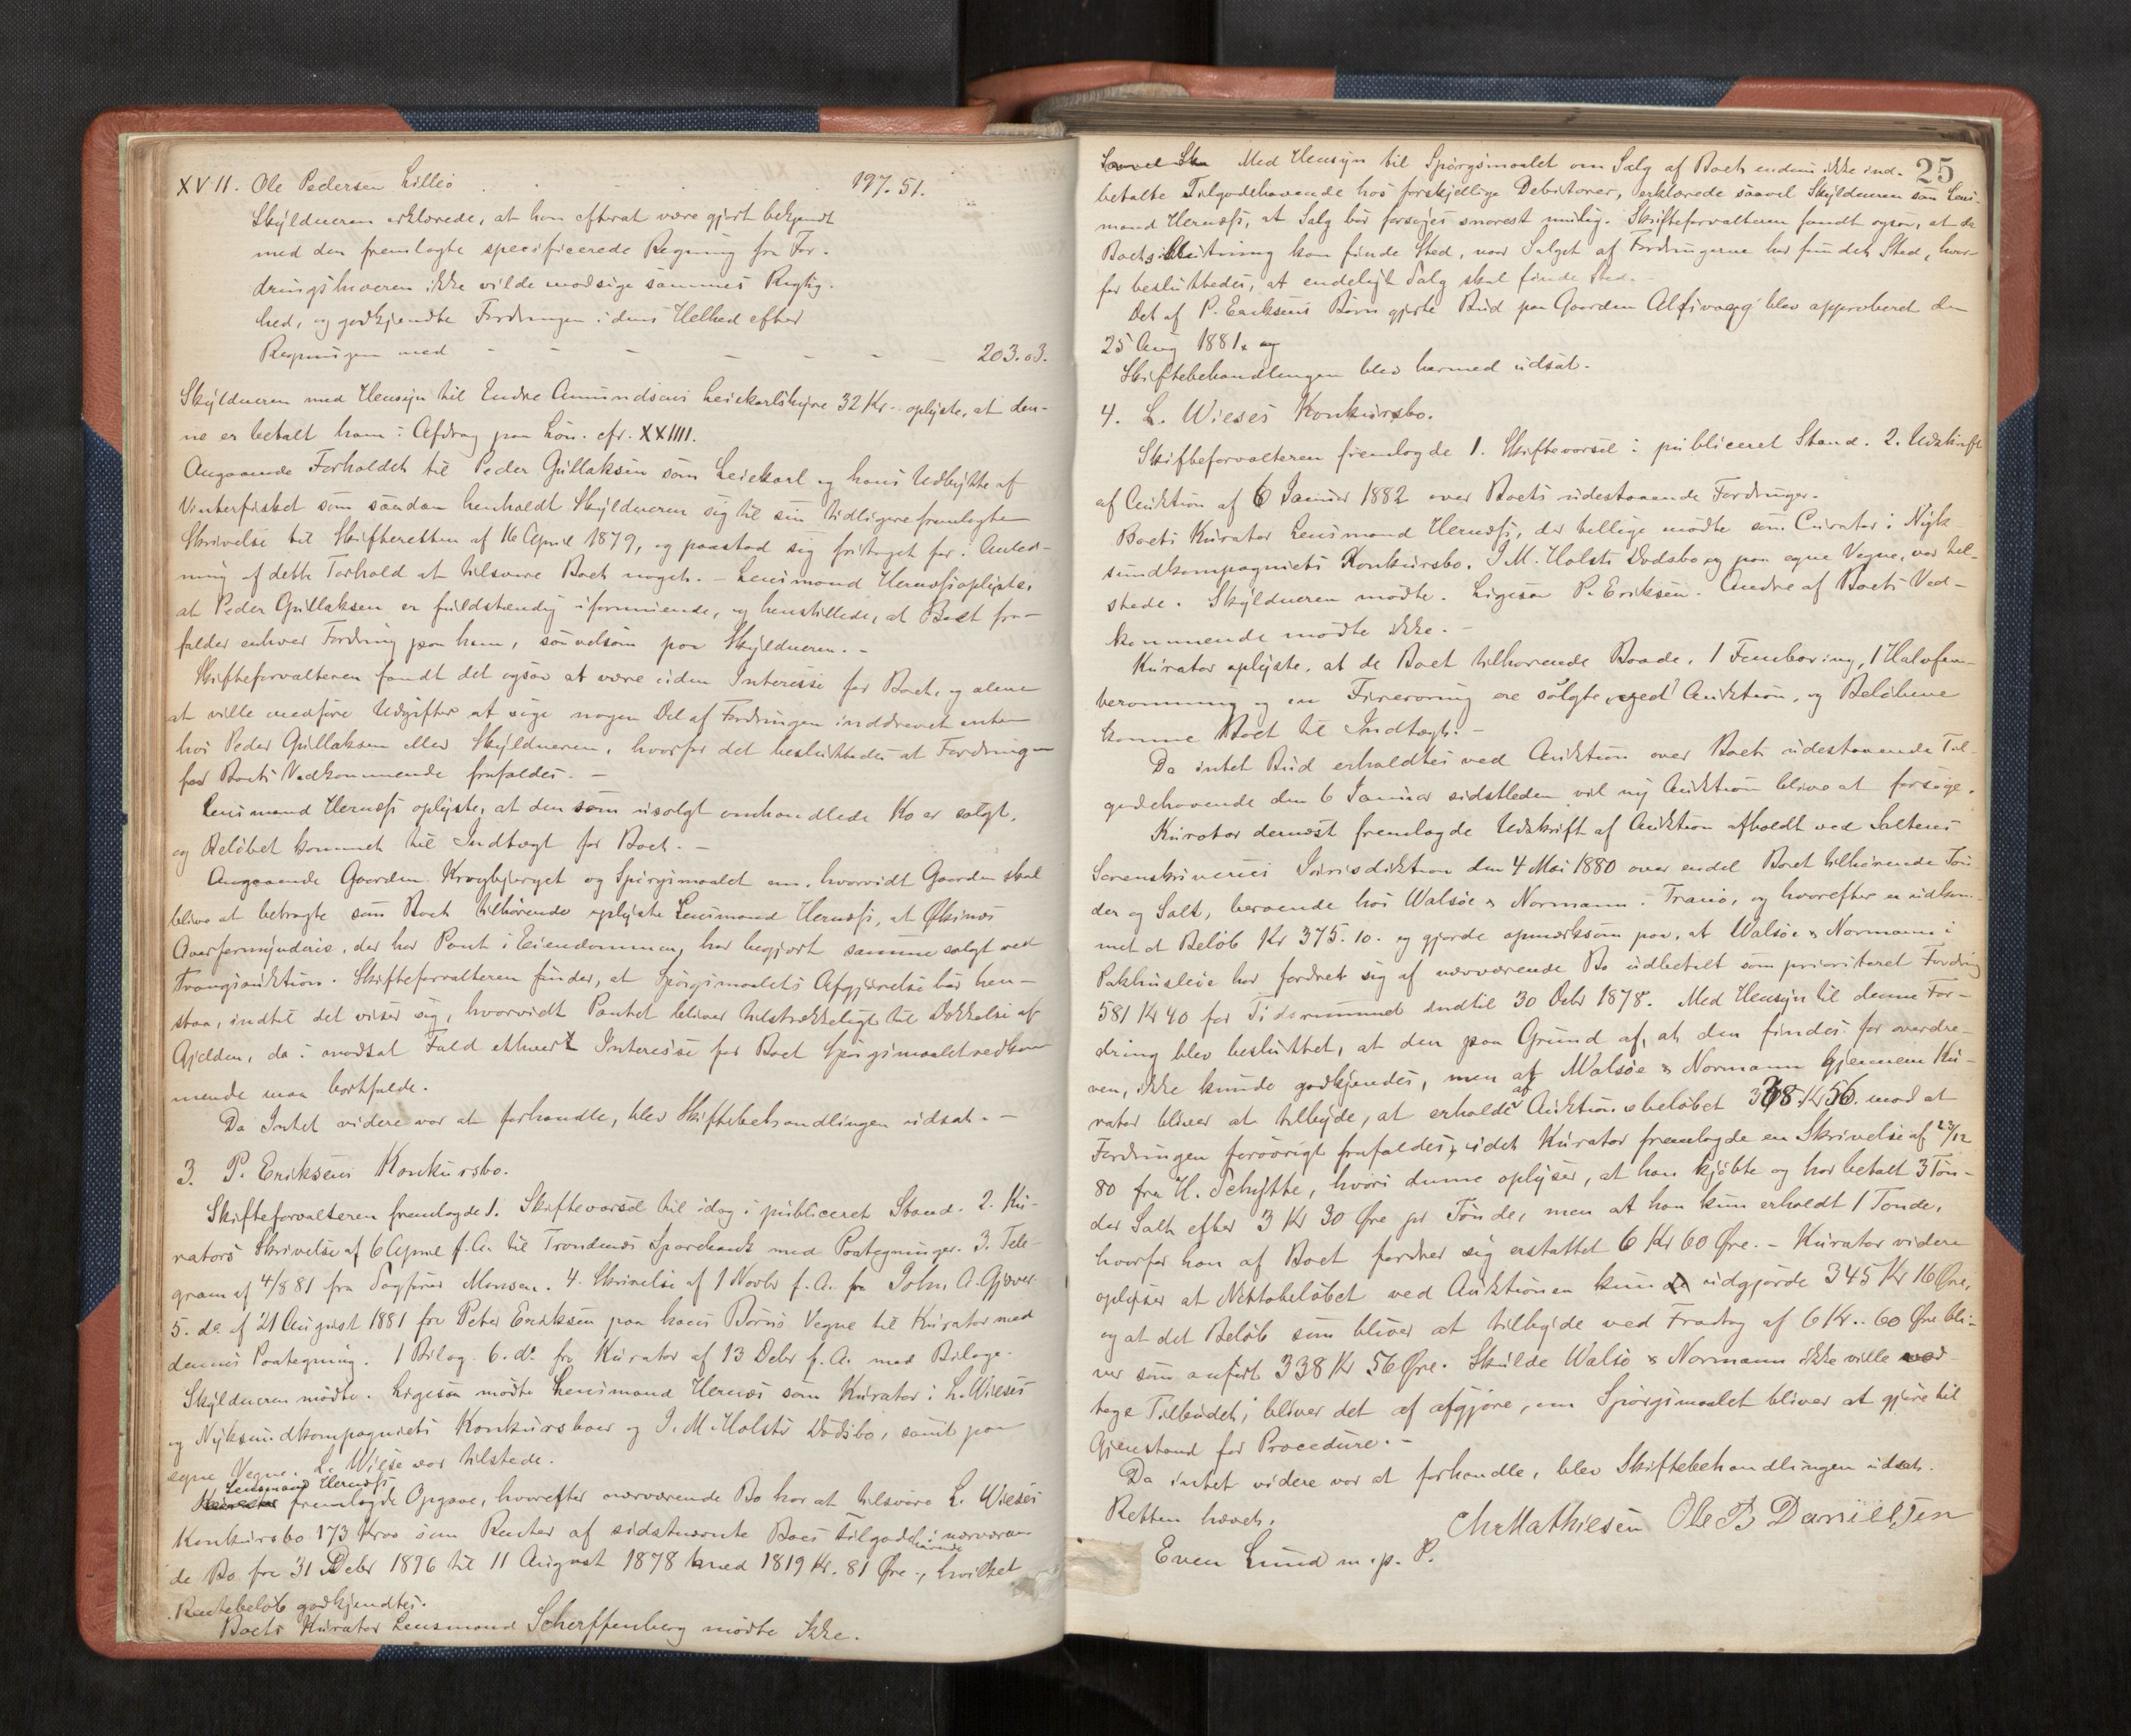 XVII. Ole Pedersen Lilleö . . . . . 197.51.
Skyldneren erklærede, at han efterat være gjort bekjendt
med den fremlagte specificerede Regning fra For-
dringshaveren ikke vilde modsige sammes Rigtig-
hed, og godkjendte Fordringen i dens Helhed efter
Regningen med - - - - - - - 203.03.
Skyldneren med Hensyn til Endre Amundsens Leiekarlshyre 32 Kr. oplyste, at den-
ne er betalt ham i Afdrag paa Lön. cfr. XXIIII.
Angaaende Forholdet til Peder Gullaksen som Leiekarl og hans Udbytte af
Vinterfisket som saadan henholdt Skyldneren sig til sin tidligere fremlagte
Skrivelse til Skifteretten af 16 April 1879, og paastod sig fritaget for i Anled-
ning af dette Forhold at tilsvare Boet noget. - Lensmand Hernæs oplyste,
at Peder Gullaksen er fuldstændig uformuende, og henstillede, at Boet fra-
falder enhver Fordring paa ham, saavelsom paa Skyldneren. -
Skifteforvalteren fandt det ogsaa at være uden Interesse for Boet, og alene
at ville medføre Udgifter at søge nogen Del af Fordringen inddrevet enten
hos Peder Gullaksen eller Skyldneren, hvorfor det besluttedes at Fordringen
for Boets Vedkommende frafaldes. -
Lensmand Hernæs oplyste, at den som usolgt omhandlede Ko er solgt,
og Beløbet kommet til Indtægt for Boet. -
Angaaende Gaarden Krogbjerget og Spörgsmaalet om, hvorvidt Gaarden skal
blive at betragte som Boet tilhörende oplyste Lensmand Hernæs, at Öksnes
Overformynderie, der har Pant i Eiendommen, har begjært samme solgt ved
Tvangsauktion. Skifteforvalteren finder, at Spörgsmaalets Afgjörelse bör hen-
staa, indtil det viser sig, hvorvidt Pantet bliver tilstrækkeligt til Dækkelse af
Gjelden, da i modsat Fald ethvert Interesse for Boet Spörgsmaalet vedkom-
mende maa bortfalde.
Da Intet videre var at forhandle, blev Skiftebehandlingen udsat. -
3. P. Eriksens Konkursbo.
Skifteforvalteren fremlagde 1. Skiftevarsel til idag i publiceret Stand. 2. Ku-
rators Skrivelse af 6 April f. A. til Trondenæs Sparebank med Paategninger. 3. Tele-
gram af 4/8 81 fra Sagförer Monsen. 4. Skrivelse af 1 Novbr f. A. fra John A. Gjæver.
5. do af 21 August 1881 fra Peter Eriksen paa hans Börns Vegne til Kurator med
dennes Paategning. 1 Bilag. 6. do fra Kurator af 13 Debr f. A. med Bilage.
Skyldneren mödte. Ligesaa mödte Lensmand Hernæs som Kurator i L. Wieses
og Nyksundkompagniets Konkursboer og J. M. Holsts Dödsbo, samt paa
egne Vegne. L. Wiese var tilstede.
Lensmand Hernæs
fremlagde Opgave, hvorefter nærværende Bo har at tilsvare L. Wieses
Konkursbo 173 Kroner som Renter af sidstnævnte Boes Tilgodehavende i nærværen-
de Bo fra 31 Debr 1876 til 11 August 1878 med 1819 Kr. 81 Øre, hvilket
Rentebeløb godkjendtes.
Boets Kurator Lensmand Scherffenberg mödte ikke.
25
Med Hensyn til Spörgsmaalet om Salg af Boets endnu ikke ind-
betalte Tilgodehavende hos forskjellige Debitorer, erklærede saavel Skyldneren som Lens-
mand Hernæs, at Salg bör forsöges snarest mulig. Skifteforvalteren fandt ogsaa, at da
Boets Slutning kan finde Sted, naar Salget af Fordringerne har fundet Sted, hvor-
for besluttedes, at endeligt Salg skal finde Sted. -
Det af P. Eriksens Börn gjorte Bud paa Gaarden Alfsvaag blev approberet den
25 Aug 1881. og
Skiftebehandlingen blev hermed udsat.
4. L. Wieses Konkursbo.
Skifteforvalteren fremlagde 1. Skiftevarsel i publiceret Stand. 2. Udskrift
af Auktion af 6 Januar 1882 over Boets udestaaende Fordringer.
Boets Kurator Lensmand Hernæs, der tillige mödte som Curator i Nyk-
sundkompagniets Konkursbo, J. M. Holsts Dødsbo og paa egne Vegne, var til-
stede. Skyldneren mödte. Ligesaa P. Eriksen. Andre af Boets Ved-
kommende mödte ikke. -
Kurator oplyste, at de Boet tilhörende Baade, 1 Femböring, 1 Halvfem-
beromning og en Fireroring ere solgte ved Auktion, og Belöbene
komne Boet til Indtægt. -
Da intet Bud erholdtes ved Auktion over Boets udestaaende Til-
godehavende den 6 Januar sidstleden vil ny Auktion blive at forsöge.
Kurator dernæst fremlagde Udskrift af Auktion afholdt ved Saltens
Sorenskriveries Jurisdiktion den 4 Mai 1880 over endel Boet tilhörende Tön-
der og Salt, beroende hos Walsöe & Normann i Tranö, og hvorefter er udkom-
met et Belöb Kr 375.10. og gjorde opmærksom paa, at Walsöe & Normann i
Pakhusleie har fordret sig af nærværende Bo udbetalt som prioriteret Fordring
581 Kr 40 for Tidsrummet indtil 30 Debr 1878. Med Hensyn til denne For-
dring blev besluttet, at den paa Grund af, at den findes for overdre-
ven, ikke kunde godkjendes, men at Walsöe & Normann gjennem Ku-
rator bliver at tilbyde, at erholde af Auktionsbelöbet 338 Kr 56. mod at
Fordringen foröorigt frafaldes, idet Kurator fremlagde en Skrivelse af 23/12
80 fra H. Schytte, hvori denne oplyser, at han kjöbte og har betalt 3 Tön-
der Salt efter 3 Kr 30 Øre pr Tönde, men at han kun erholdt 1 Tonde,
hvorfor han af Boet fordrer sig erstattet 6 Kr 60 Øre. - Kurator videre
oplyser at Nettobelöbet ved Auktionen kun udgjorde 345 Kr 16 Øre,
og at det Belöb som bliver at tilbyde ved Fradrag af 6 Kr.. 60 Øre bli-
ver som anfört 338 Kr 56 Øre. Skulde Walsö & Normann ikke ville mod-
tage Tilbudet, bliver det at afgjöre, om Spörgsmaalet bliver at gjöre til
Gjenstand for Procedure. -
Da intet videre var at forhandle, blev Skiftebehandlingen udsat.
Retten hævet.
Chr Mathiesen Ole P Danielsen
Even Lund m. p. P.